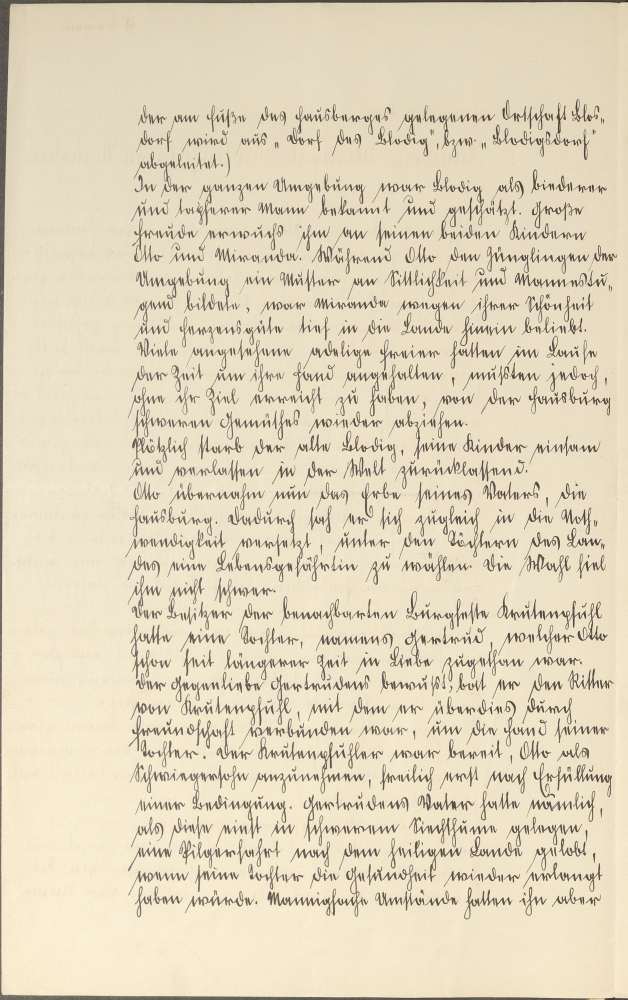 der am Fuße des Hausberges gelegenen Ortschaft Blos-
dorf wird aus „Dorf des Blodig", bzw. „Blodigsdorf"
abgeleitet.)
In der ganzen Umgebung war Blodig als biederer
und tapferer Mann bekannt und geschätzt. Große
Freude erwuchs ihm an seinen beiden Kindern
Otto und Miranda. Während Otto den Jünglingen der
Umgebung ein Muster an Sittlichkeit und Mannestu-
gend bildete, war Miranda wegen ihrer Schönheit
und Herzensgüte tief in die Lande hinein beliebt.
Viele angesehene adelige Freier hatten im Laufe
der Zeit um ihre Hand angehalten, mußten jedoch,
ohne ihr Ziel erreicht zu haben, von der Hausburg
schweren Gemüthes wieder abziehen.
Plötzlich starb der alte Blodig, seine Kinder einsam
und verlassen in der Welt zurücklassend.
Otto übernahm nun das Erbe seines Vaters, die
Hausburg. Dadurch sah er sich zugleich in die Noth-
wendigkeit versetzt, unter den Töchtern des Lan-
des eine Lebensgefährtin zu wählen. Die Wahl fiel
ihm nicht schwer.
Der Besitzer der benachbarten Burgfeste Krutenpfuhl
hatte eine Tochter, namens Gertrud, welcher Otto
schon seit längerer Zeit in Liebe zugethan war.
Der Gegenliebe Gertrudens bewußt, bat er den Ritter
von Krutenpfuhl, mit dem er überdies durch
Freundschaft verbunden war, um die Hand seiner
Tochter. Der Krutenpfuhler war bereit, Otto als
Schwiegersohn anzunehmen, freilich erst nach Erfüllung
einer Bedingung. Gertrudens Vater hatte nämlich,
als diese einst in schwerem Siechthume gelegen,
eine Pilgerfahrt nach dem heiligen Lande gelobt,
wenn seine Tochter die Gesundheit wieder erlangt
haben würde. Mannigfache Umstände hatten ihn aber